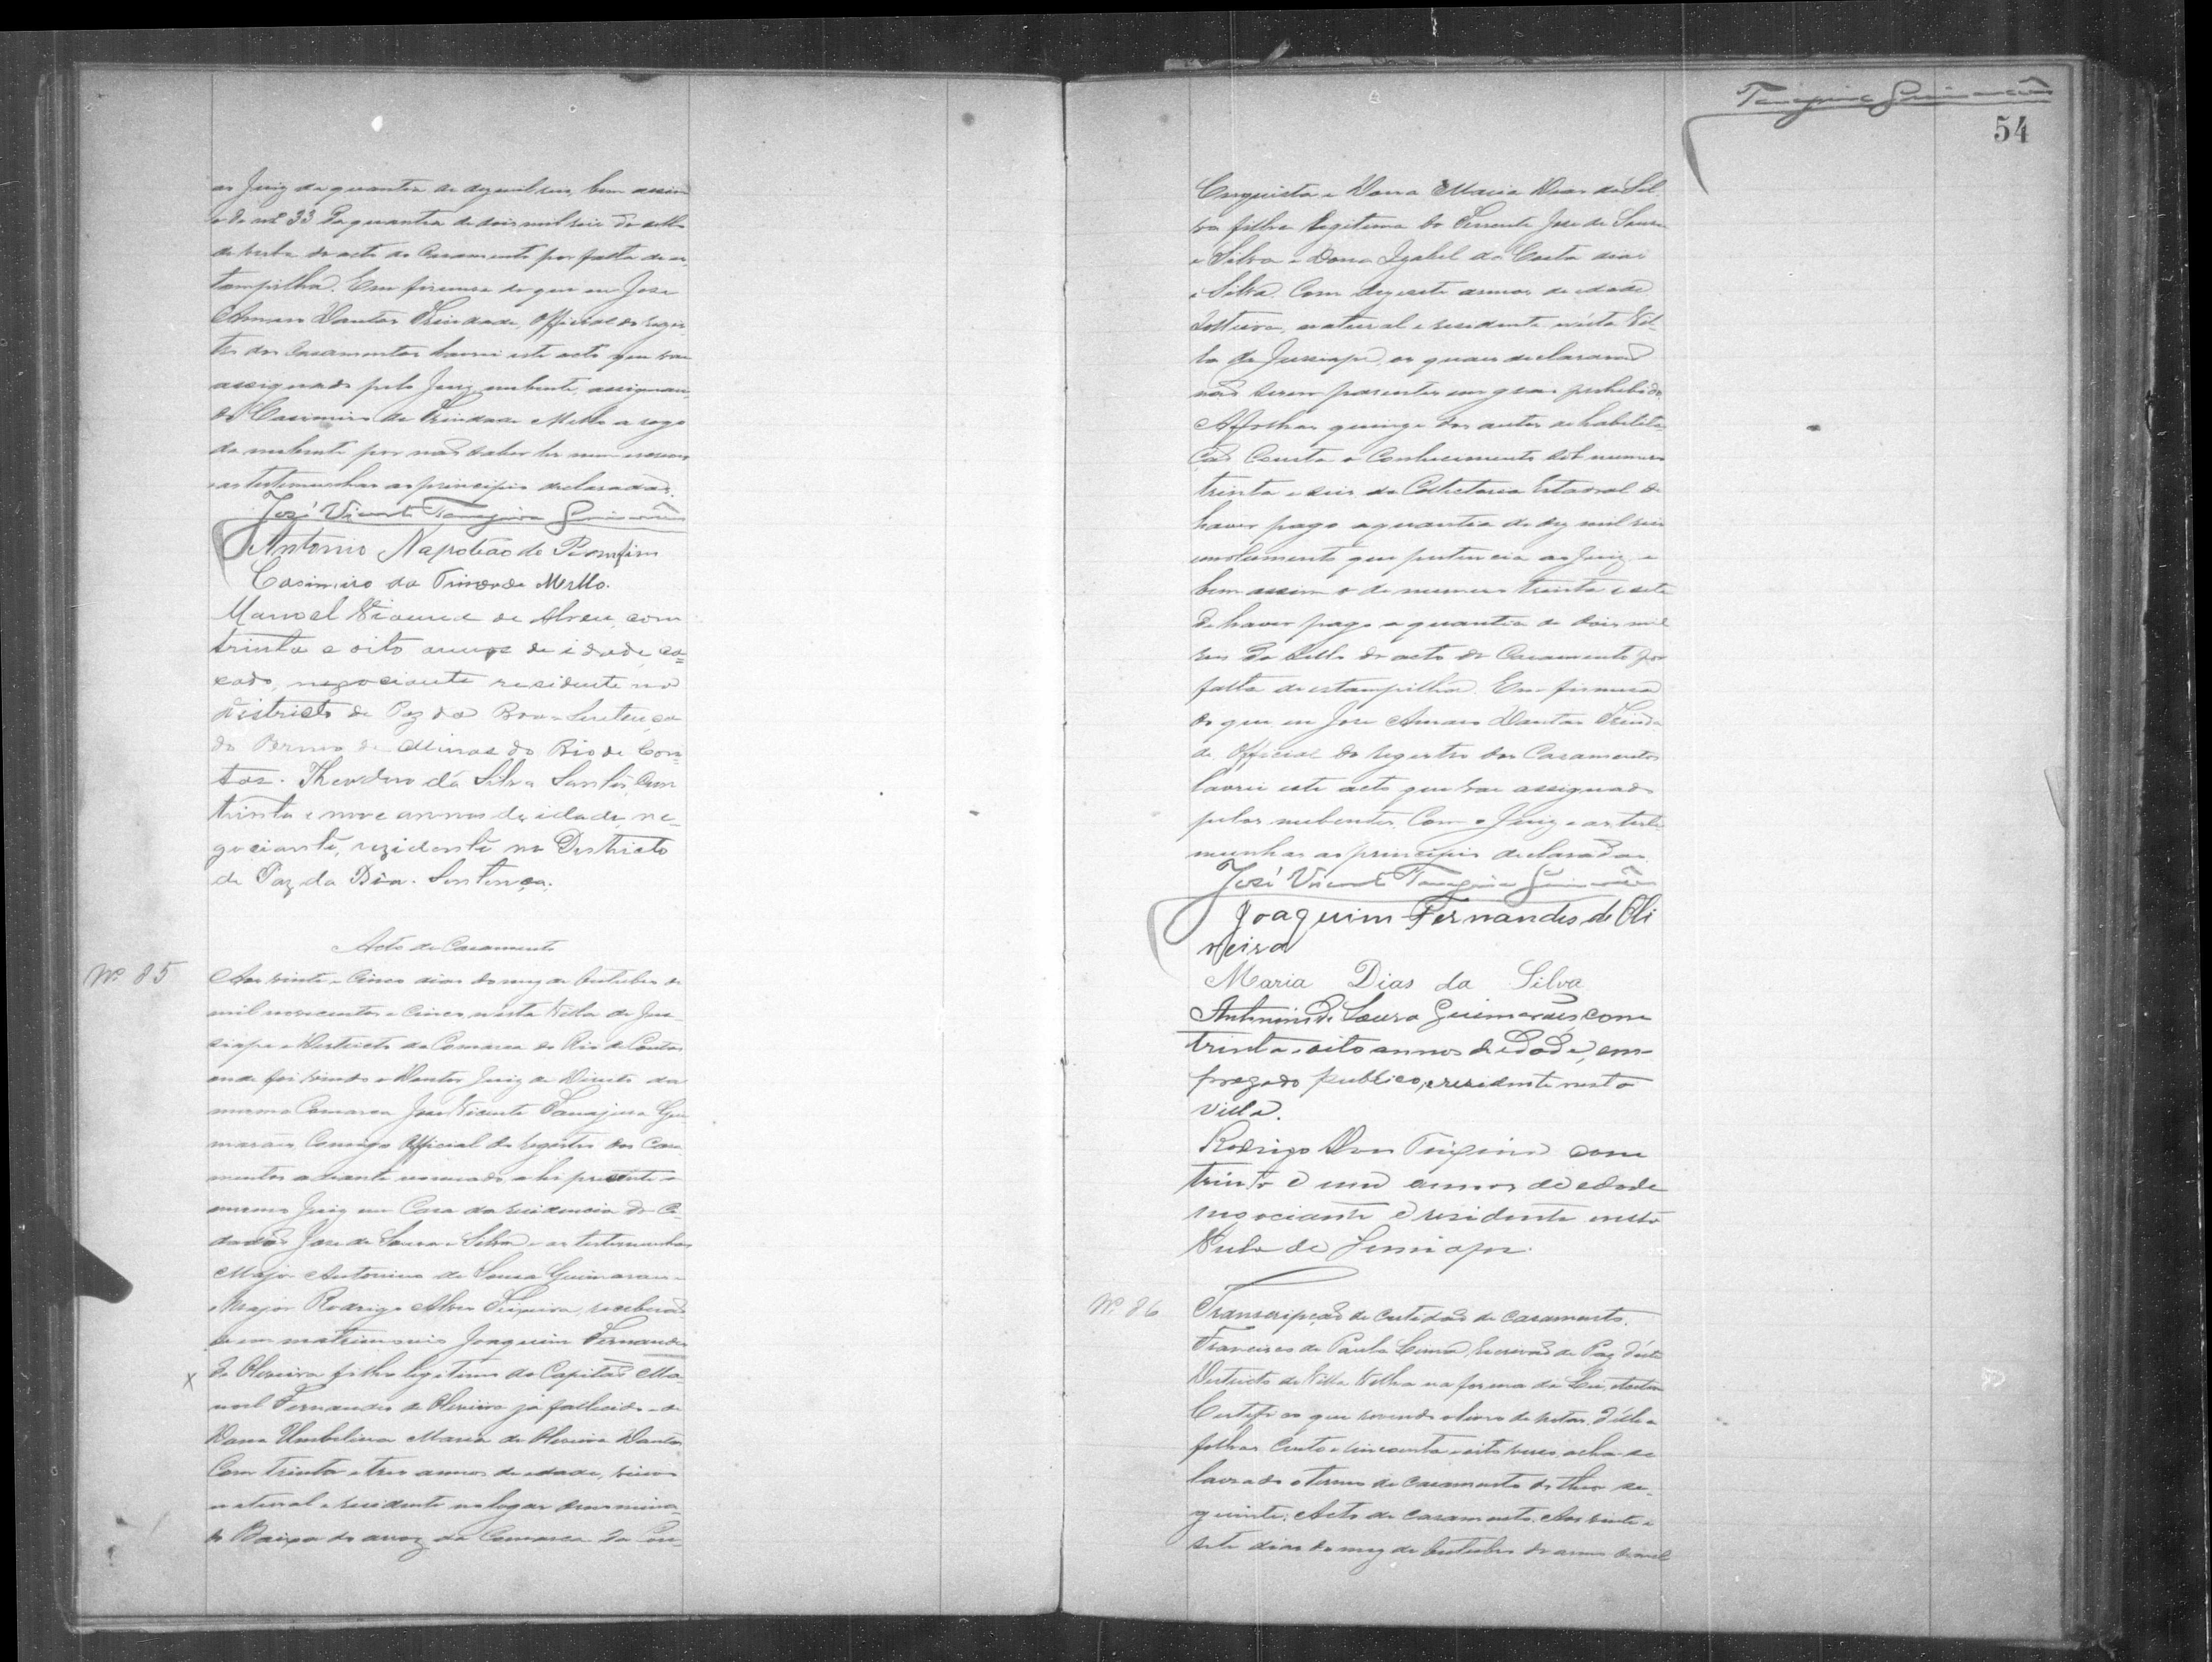 ao Juiz da quantia de dez mil reis, bem assim
o de nº 33 da quantia de dois mil reis do sello
de verba do acto do Casamento por falta de es
tampilha. Em firmesa do que eu Jose
Amaro Dantas Trindade, Official do regis
tro dos Casamentos lavrei este acto que vae
assignado pelo Juiz nubente, assignan
do Casimiro da Trindade Mello a rogo
da nubente por não saber ler nem escrever
e as testemunhas ao principio declaradas.
José Vicente Tanajura Guimarães
Antonio Napoleão do Bomfim
Casimiro da Trindade Mello.
Manoel Vianna de Abreu, com
trinta e oito annos de idade, ca=
sado, negociante residente no
districto de Paz da Boa-Sentença
do Termo de Minas do Rio de Con=
tas. Theodoro da Silva Santos, com
trinta e nove annos de idade, ne-
gociante, rezidente no Districto
de Paz da Bôa-Sentença.
Acto de Casamento
Nº 85
Aos vinte e cinco dias do mez de Outubro de
mil novecentos e cinco nesta Villa de Jus
siape e Districto da Comarca do Rio de Contas
onde foi vindo o Doutor Juiz de Direito da
mesma Comarca Jose Vicente Tanajura Gui
marães, Comigo Official do registro dos Casa
mentos adiante nomeado ahi presente o
mesmo Juiz em Casa da residencia do Ci
dadão Jose de Sousa e Silva e as testemunhas
Major Antonino de Sousa Guimarães
e Major Rodrigo Alves Teixeira, receberão
se em matrimonio Joaquim Fernandes
x de Oliveira filho legitimo do Capitão Ma
noel Fernandes de Oliveira já fallecido e de
Dona Umbelina Maria de Oliveira Dantas
Com trinta e tres annos de edade, viuvo
natural e residente no logar denomina
do Baixa do arroz da Comarca da Con
Tanajura Guimarães
54
Conquista e Dona Maria Dias da Sil
va filha legitima do Tenente Jose de Sousa
e Silva e Dona Izabel da Costa dias
e Silva. Com dezesete annos de edade
solteira, natural e residente nésta Vil
la de Jussiape, os quaes declararão
não serem parentes em grao prohibido.
A folhas quinze dos autos de habilita
ção Consta o Conhecimento sob numero
trinta e seis da Collectoria Estadoal de
haver pago a quantia de dez mil reis
emolumento que pertencia ao Juiz e
bem assim o de numero trinta e sete
de haver pago a quantia de dois mil
reis do Sello do acto do Casamento por
falta de estampilha. Em firmesa
do que eu Jose Amaro Dantas Trinda
de Official do registro dos Casamentos
lavrei este acto que vae assignado
pelos nubentes, Com o Juiz e as teste
munhas ao principio declaradas.
José Vicente Tanajura Guimarães
Joaquim Fernandes de Oli
veira
Maria Dias da Silva
Antonino de Souza Guimarães, com
trinta e oito annos de edade, em-
pregado publico, e residente nesta
villa.
Rodrigo Teixeira com
trinta e um annos de edade
negociante e residente nesta
Villa de Jussiape.
Nº 86
Transcripção de certidão de casamento.
Francisco de Paula Lima, Escrivão de Paz d'este
Districto de Villa Velha na forma da Lei,
Certifico que revendo o livro de notas, d'elle a
folhas cento e cincoenta e oito verso, acha-se
lavrado o termo de casamento do theor se-
guinte: Acto de casamento. Aos vinte e
sete dias do mez de Outubro do anno de mil